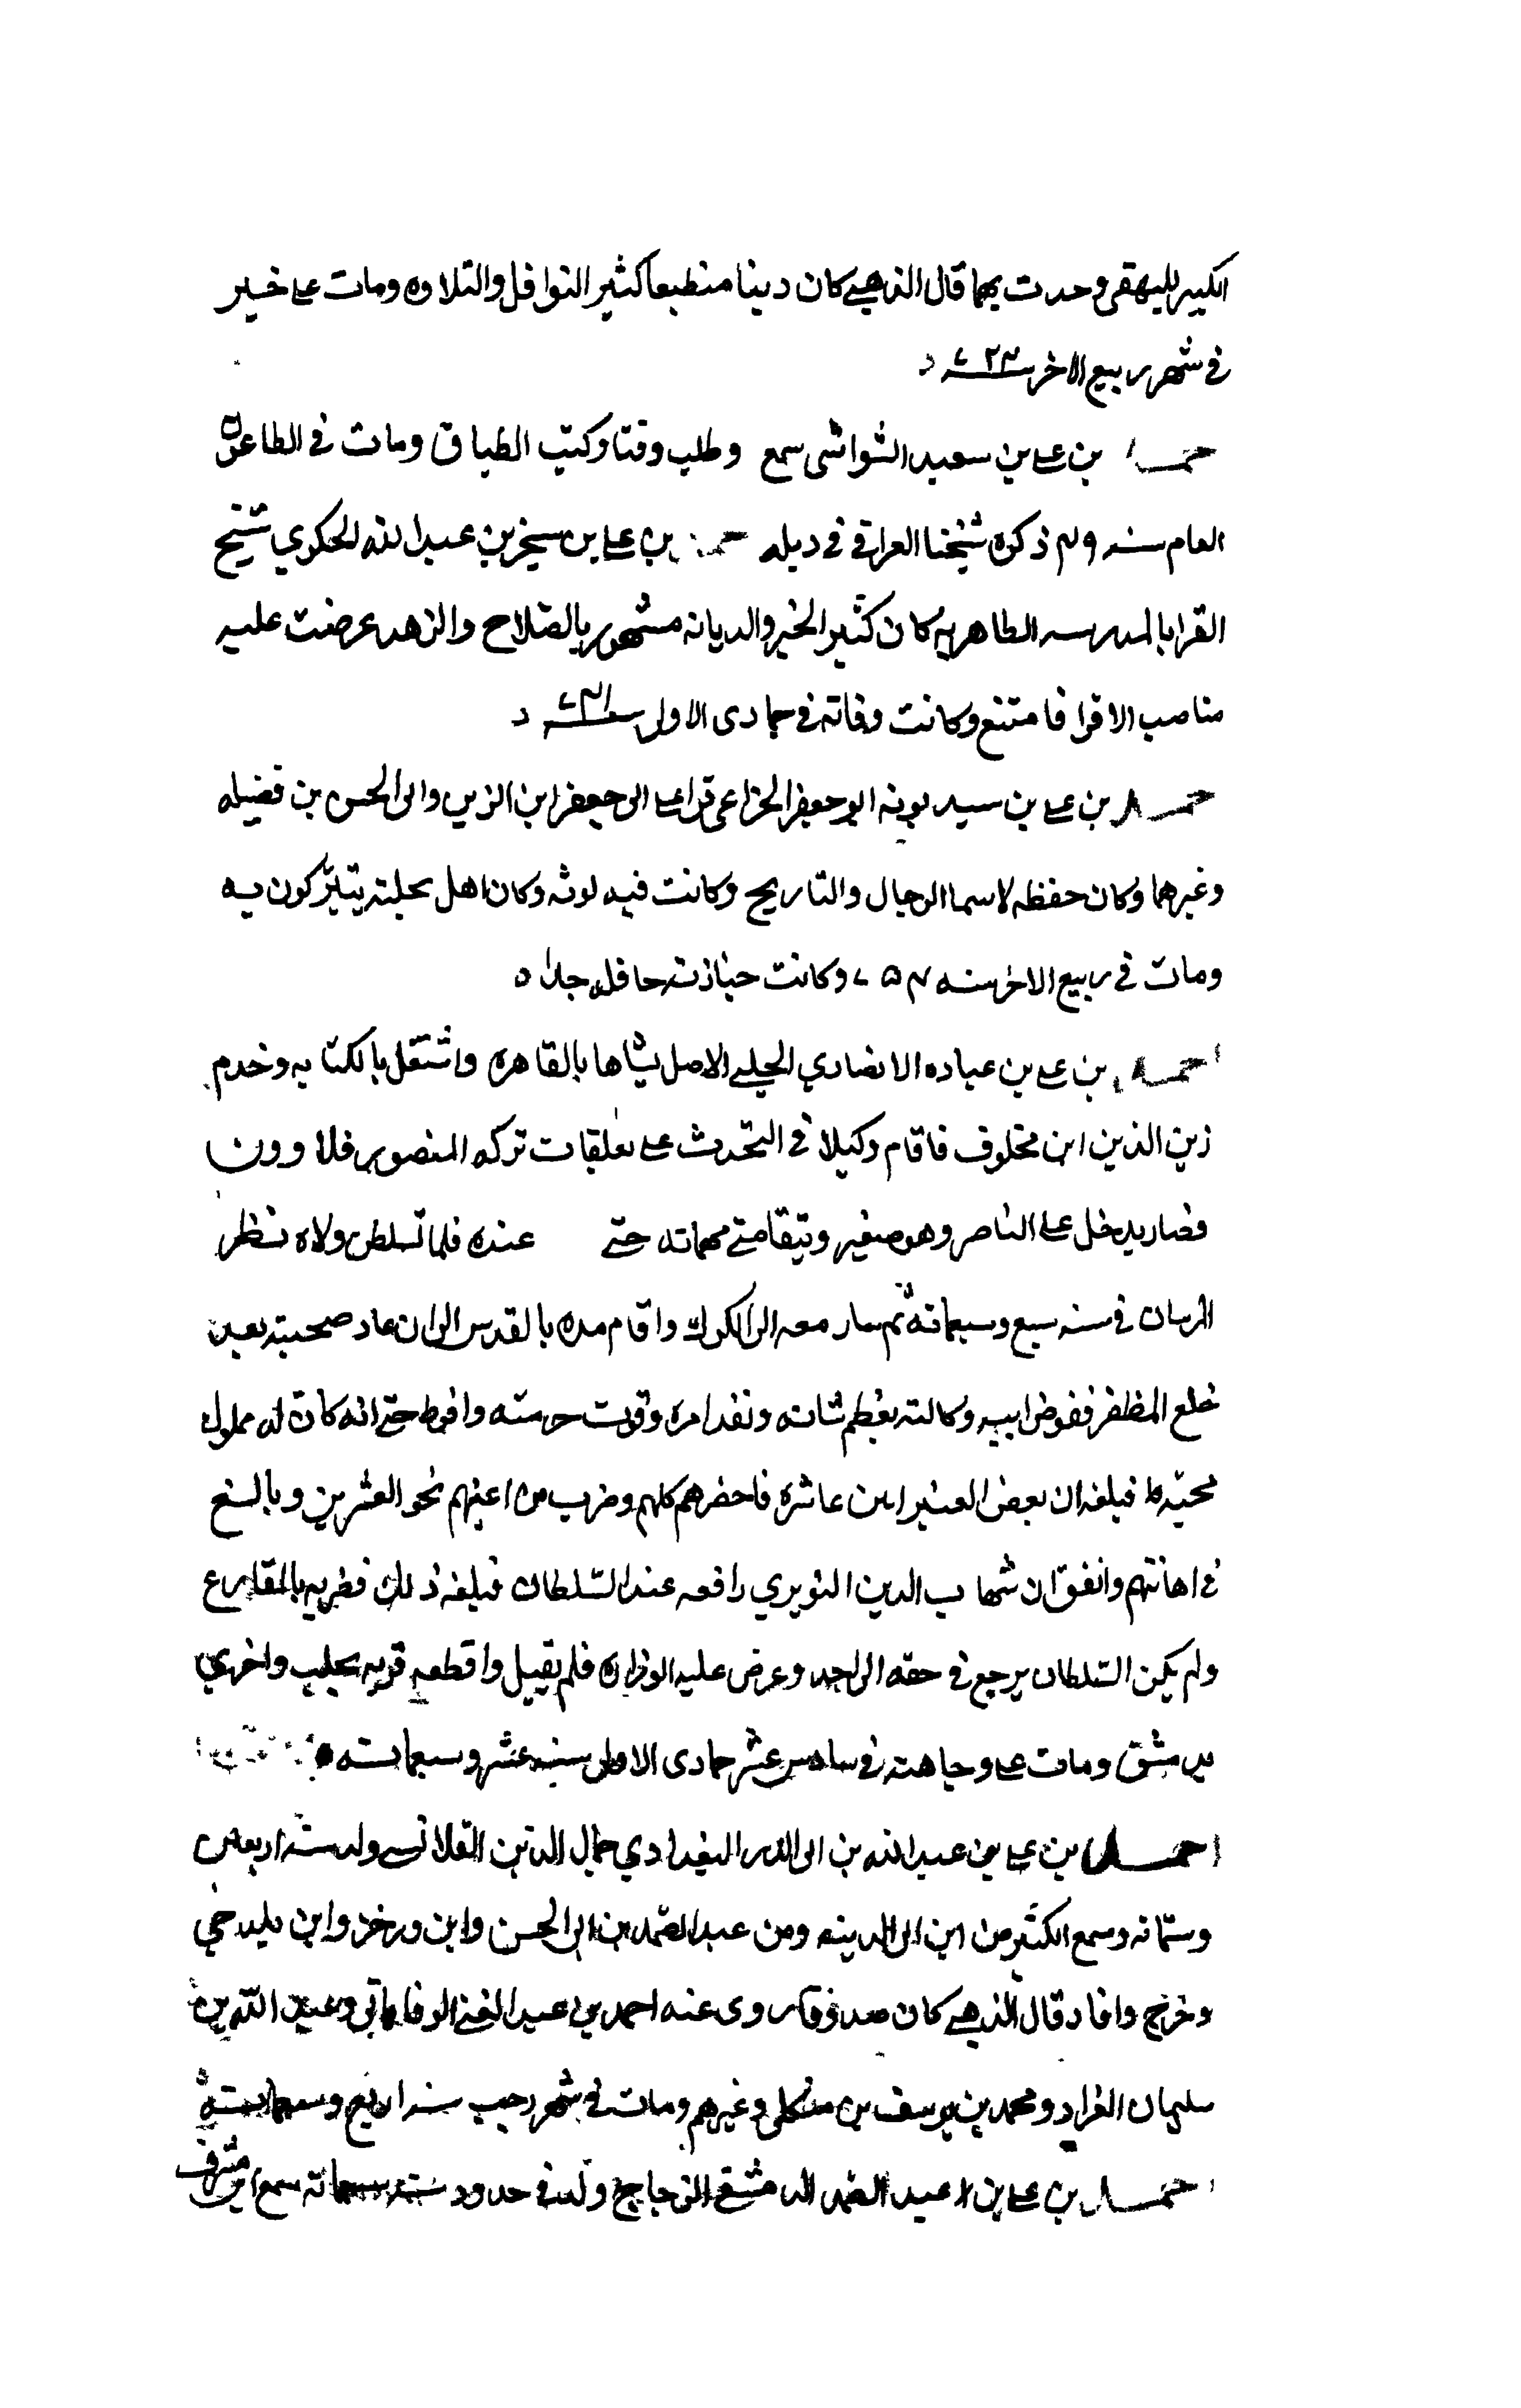 الكبير للبيهقي وحدث بهما قال الذهبي كان دينا منطبعا كثير النوافل والتلاوه ومات على خير
في شهر ربيع الاخر سنه ٧٢٣
احمد بن علي بن سعيد الشواشي سمع وطلب وقتا وكتب الطباق ومات في الطاعون
العام سنه ولم ذكره شيخنا العراقي في ديله احمد بن علي بن سنجر بن عبد الله الحكري شيخ
القرا بالمدرسه الظاهريه كان كثير الخير والديانه مشهور بالصلاح والزهد عرضت عليه
مناصب الاقرا فامتنع وكانت وفاته في جمادى الاولى سنه
احمد بن علي بن سيد بونه ابو جعفر الخزاعي قرا على ابي جعفر ابن الزبير وابي الحسن بن فضيله
وغيرهما وكان حفظه لاسما الرجال والتاريخ وكانت فيه لوثه وكان اهل بلده يتبركون به
ومات في ربيع الاخر سنه ٧٥٣ وكانت جنازته حافله جدا
احمد بن علي بن عباده الانصاري الحلبي الاصل نشاها بالقاهره واشتغل بالكتابه وخدم
زين الدين ابن مخلوف فاقام وكيلا في التحدث على تعلقات تركه المنصور قلاوون
فصار يدخل على الناصر وهو صغير ويتقاضى مهماته حتى عنده فلما تسلطن ولاه نظر
المرستان في سنه سبع وسبعمائه ثم سار معه الى الكرك واقام مده بالقدس الى ان عاد صحبته بعد
خلع المظفر ففوض اليه وكالته فعظم شانه ونفد امره وقويت حرمته وافرط حتى انه كان له مملوك
فبلغه ان بعض عاشره فاحضرهم كلهم وضرب من اعينهم نحو العشرين وبالغ
في اهانتهم واتفق ان شهاب الدين النويري رافعه عند السلطان فبلغه ذلك فضربه بالمقارع
ولم يكن السلطان يرجع في حقه الى احد وعرض عليه الوزاره فلم يقبل واقطعه قريه بحلب واخرى
بدمشق ومات على وجاهته في سادس عشر جمادى الاولى سنه عشر وسبعمائه
احمد بن علي بن عبد الله بن ابي البدر البغدادي جمال الدين القلانسي ولد سنه اربعين
وستمائه وسمع الكثير من ابن ابي الدينه ومن عبد الصمد بن ابي الحسن وابن ورخز وابن بلدجي
وخرج وافاد قال الذهبي كان صدوقا روى عنه احمد بن عبد الغني الوفاياتي وعبد الله بن
سليمان الغراد ومحمد بن يوسف بن منكلي وغيرهم ومات في شهر رجب سنه اربع وسبعمائه
احمد بن علي بن عبد الصمد الدمشقي الزجاج ولد في حدود سنه سبعمائه سمع ابن مشرف